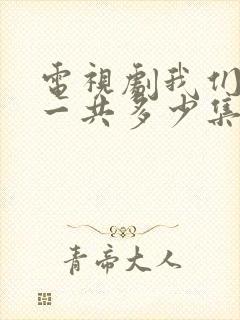 電視劇我们
一共多少集
青帝大人